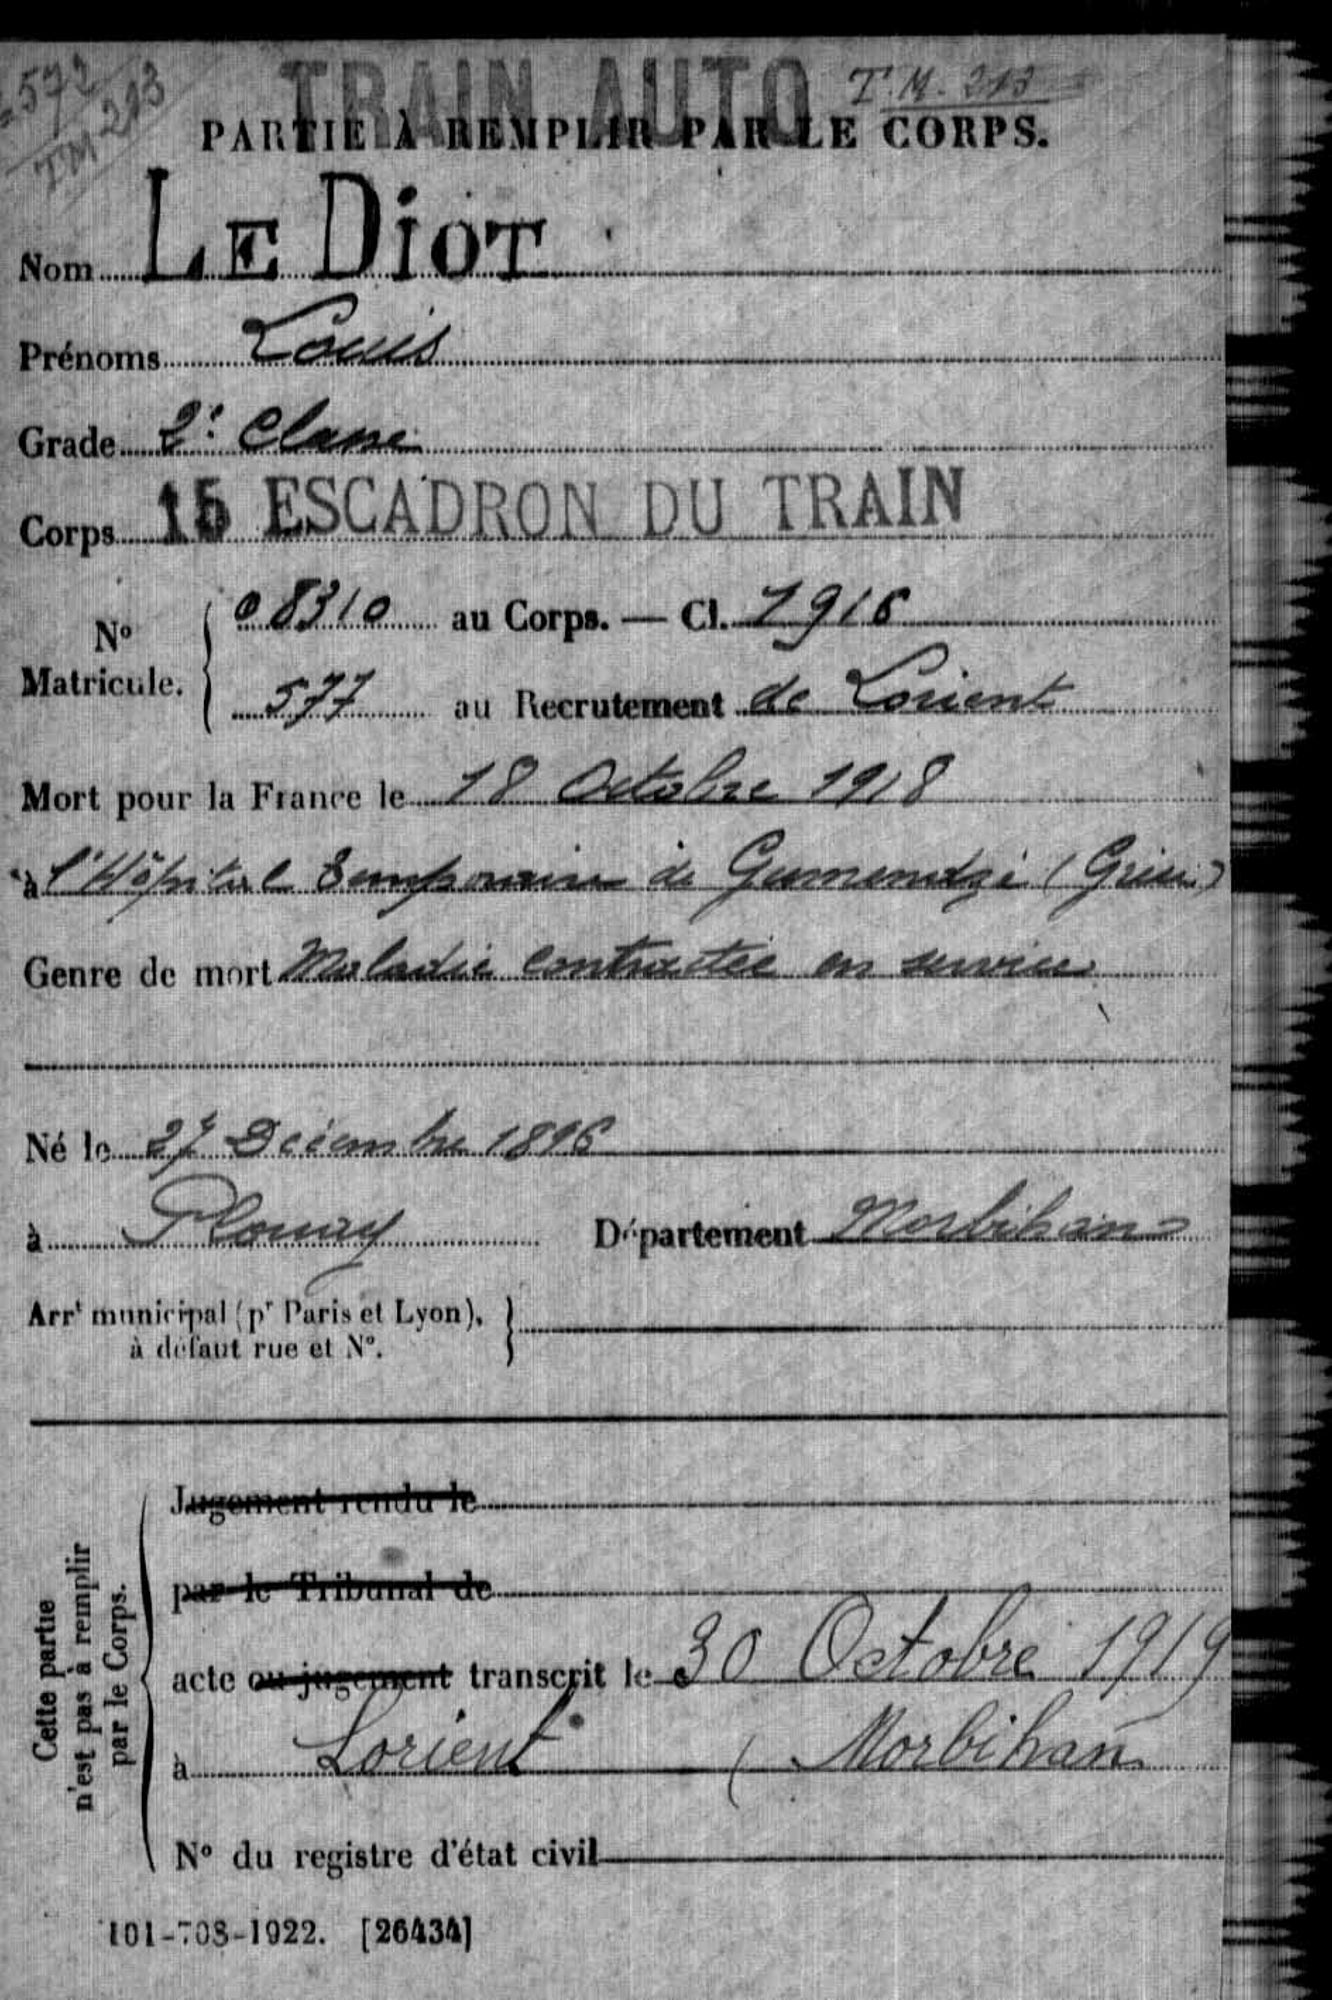 572
TM 213
TRAIN AUTO T.M. 213
PARTIE À REMPLIR PAR LE CORPS.
Nom LE DioT
Prénoms Louis
Grade 2e Classe
Corps 15 ESCADRON DU TRAIN
No Matricule.
08310 au Corps. — Cl. 1916
577 au Recrutement de Lorient
Mort pour la France le 18 Octobre 1918
à l'Hôpital temporaire de Gumendzé (Grèce)
Genre de mort Maladie contractée en service
Né le 27 Décembre 1896
à Plouay Département Morbihan
Arrt municipal (pr Paris et Lyon),
à défaut rue et N°.
Cette partie
n'est pas à remplir
par le Corps.
Jugement rendu le
par le Tribunal de
acte ou jugement transcrit le 30 Octobre 1919
à Lorient (Morbihan
N° du registre d'état civil
101-708-1922. [26434]